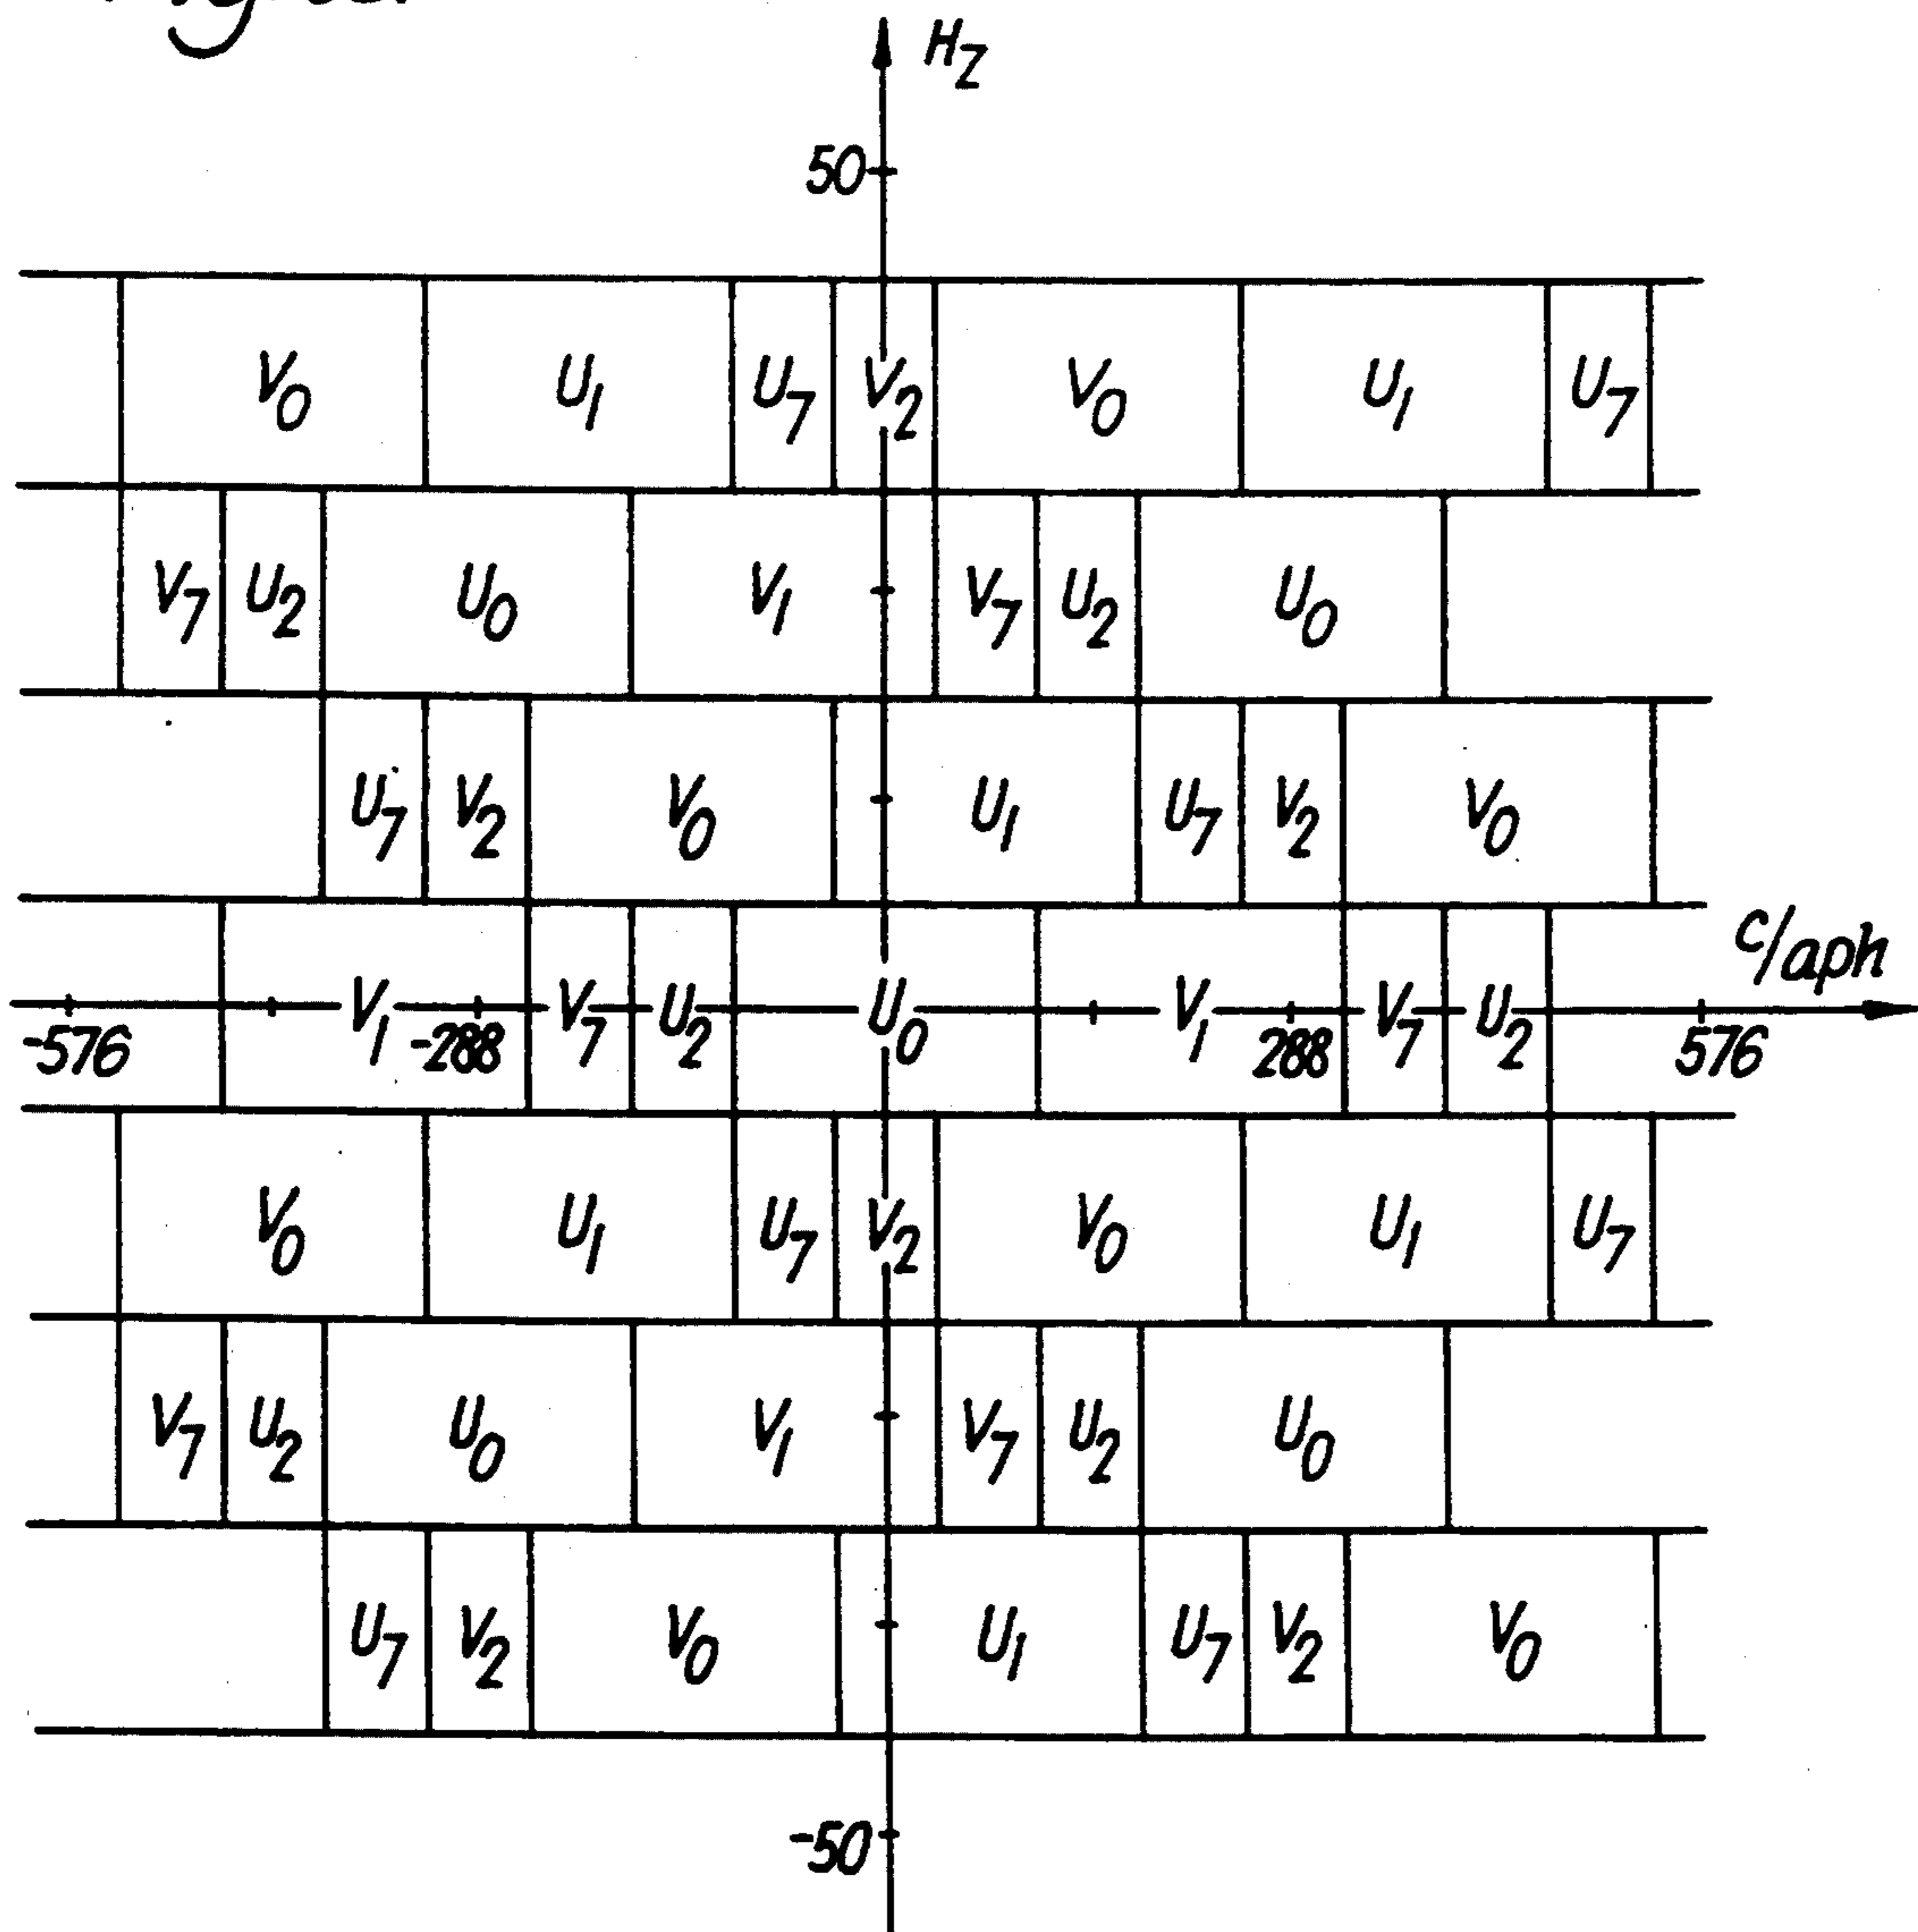 Hz
50
V0 U1 U7 V2 V0 U1 U7
V7 U2 U0 V1 V7 U2 U0
U7 V2 V0 U1 U7 V2 V0
c/aph
V1 V7 U2 U0 V1 V7 U2
-576 -288 288 576
V0 U1 U7 V2 V0 U1 U7
V7 U2 U0 V1 V7 U2 U0
U7 V2 V0 U1 U7 V2 V0
-50